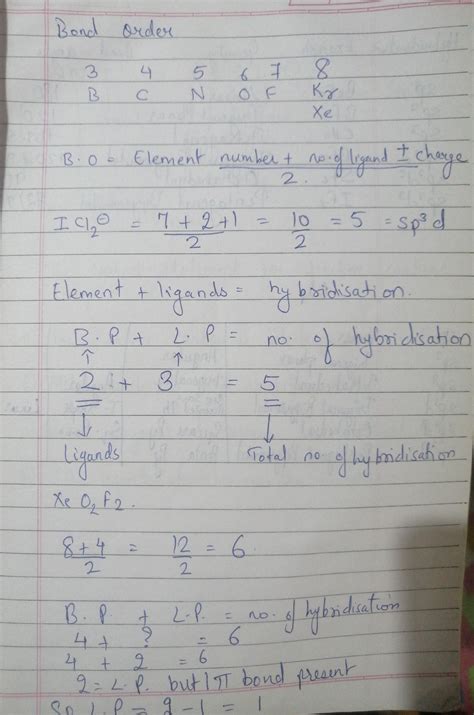 Bond Order
3 4 5 6 7 8
B C N O F Kr
Xe
B.O = Element number + no. of ligand ± charge
2.
ICl2⊖ = 7+2+1 = 10 = 5 = sp³d
2 2
Element + ligands = hybridisation.
B.P + L.P = no. of hybridisation
↑ ↑
2 + 3 = 5
↓ ↓
Ligands Total no of hybridisation
XeO2F2.
8+4 = 12 = 6.
2 2
B.P. + L.P. = no. of hybridisation
4 + ? = 6
4 + 2 = 6
2 = L.P. but 1 π bond present
So L.P = 2-1 = 1